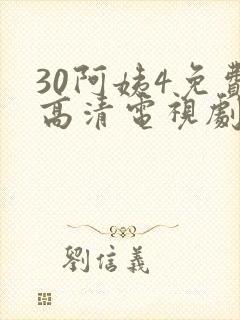 30阿姨4免費
高清電視劇
劉信義